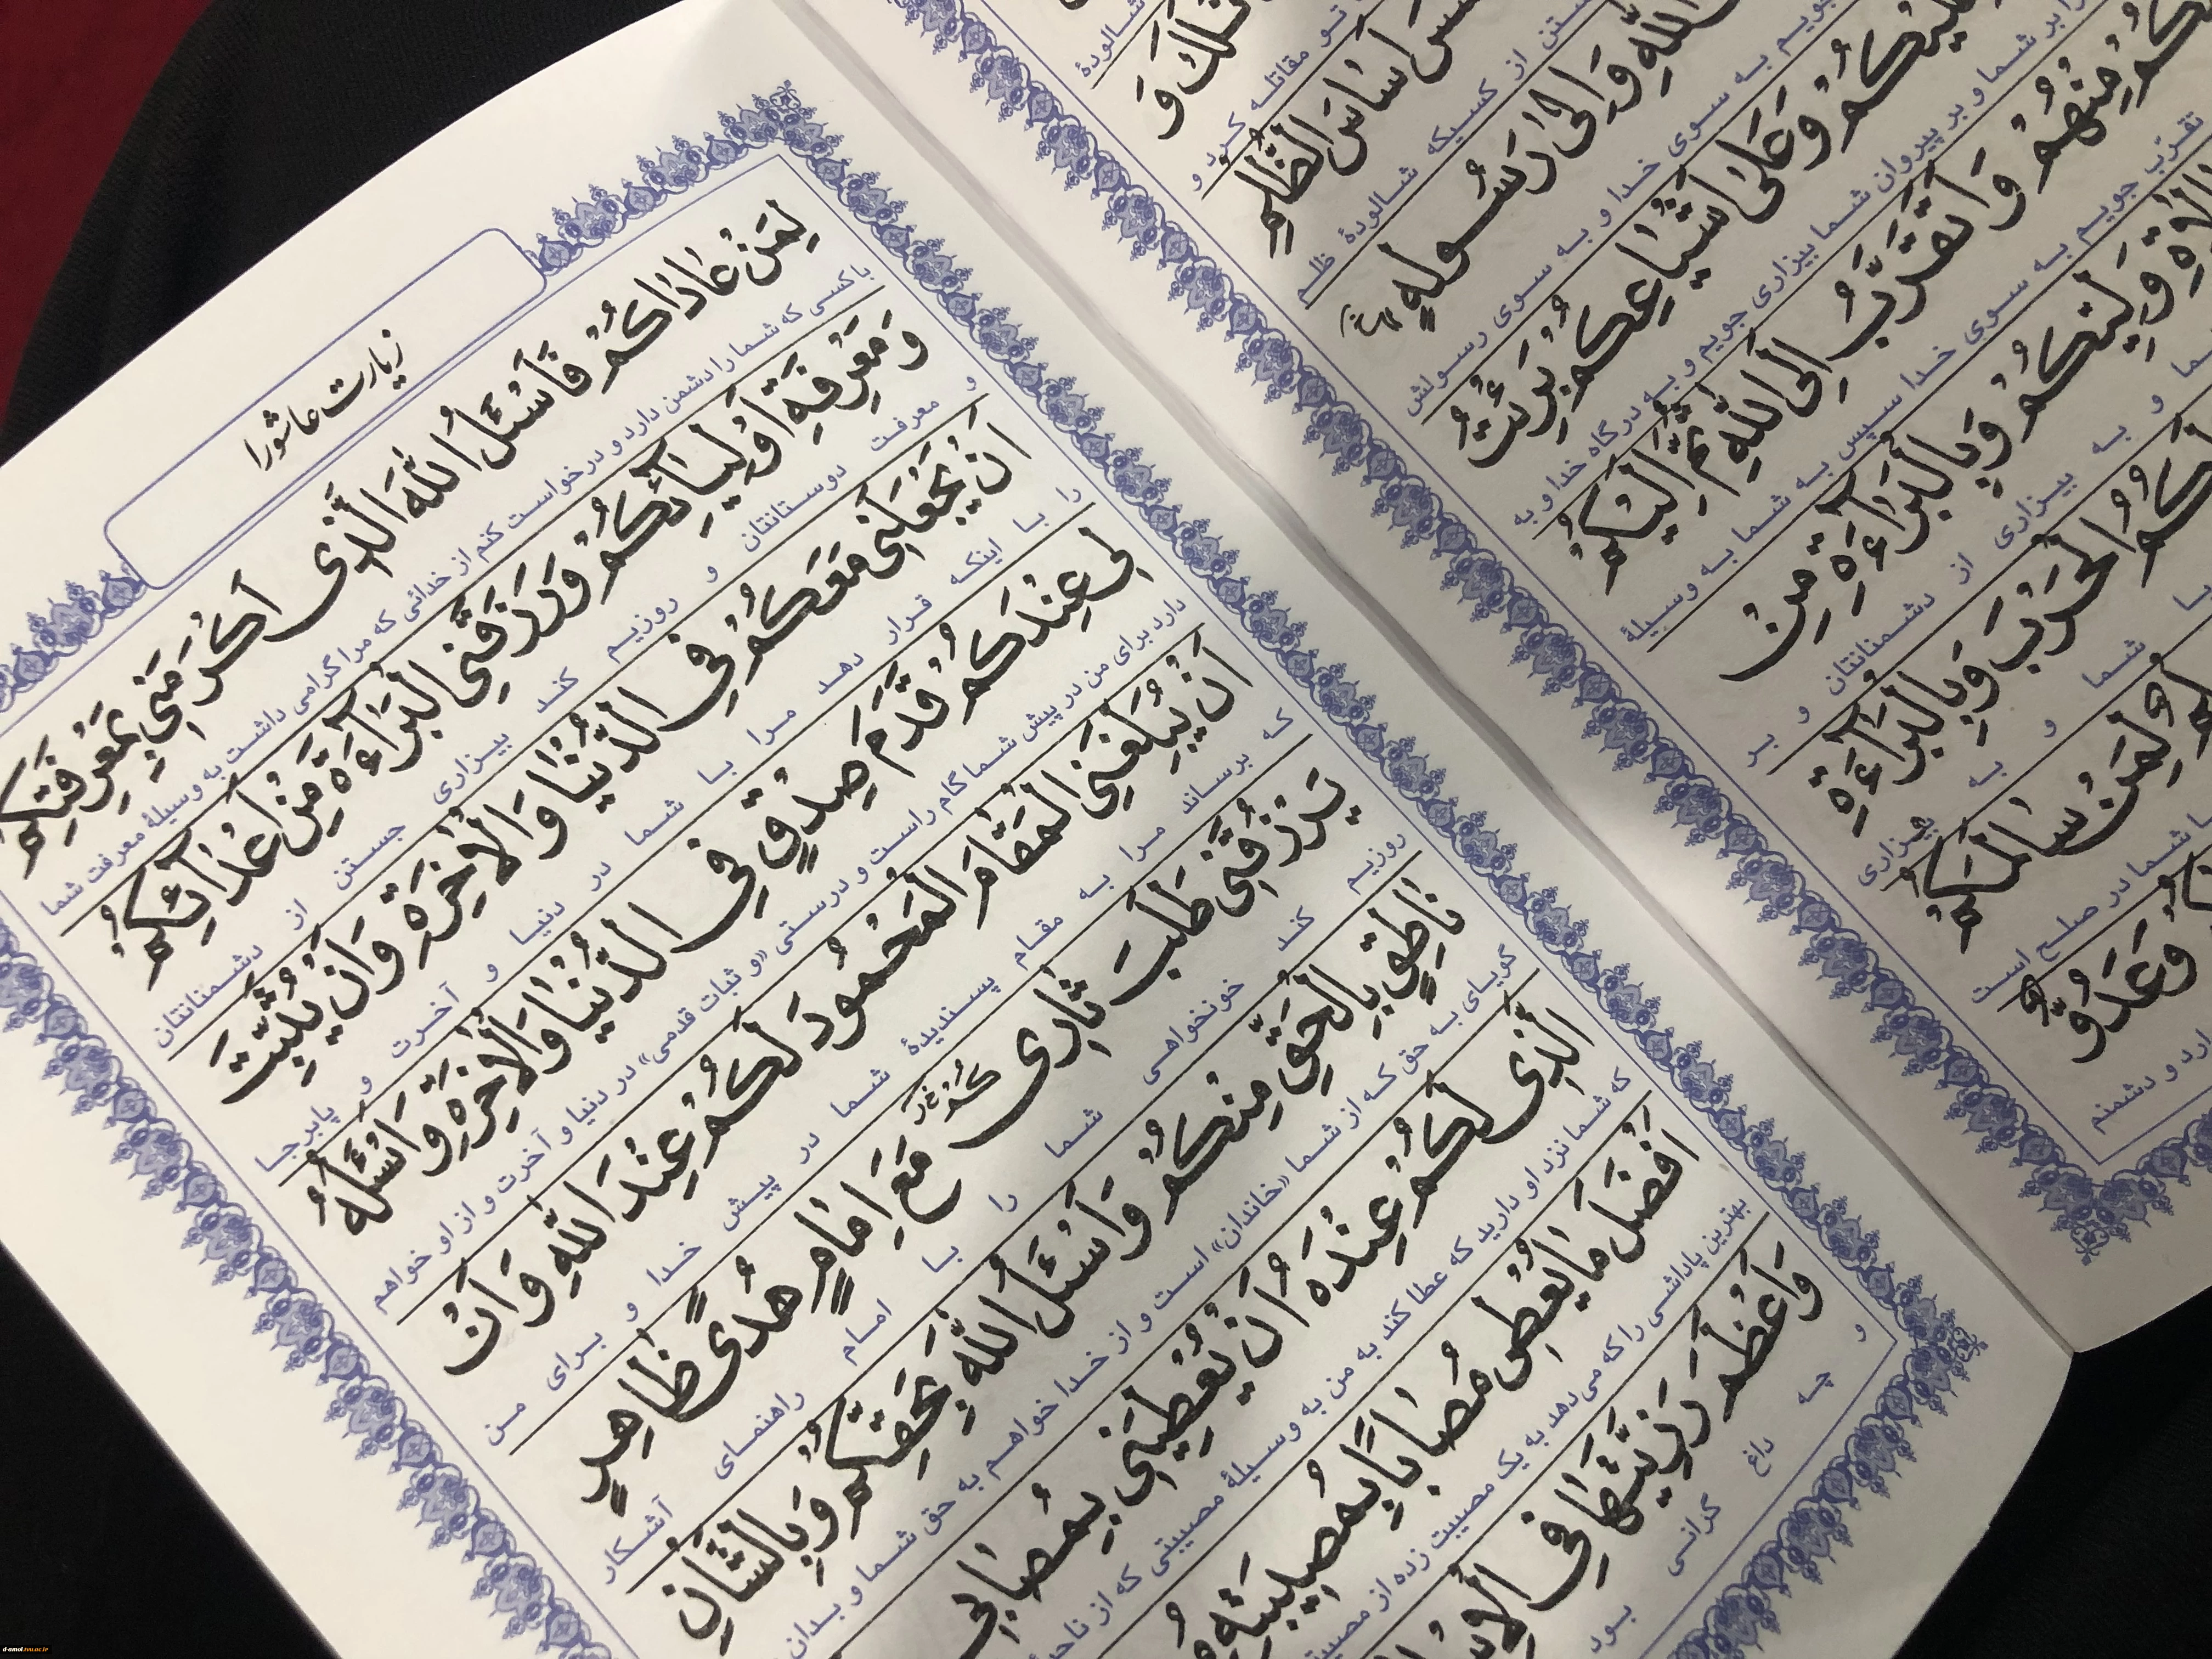 زیارت عاشورا
لِمَنْ عَادَاكُمْ فَأَسْئَلُ اللَّهَ الَّذِي أَكْرَمَنِي بِمَعْرِفَتِكُمْ
باکسی که شما را دشمن دارد و درخواست کنم از خدائی که مرا گرامی داشت به وسیلهٔ معرفت شما
وَ مَعْرِفَةِ أَوْلِيَآئِكُمْ وَرَزَقَنِي الْبَرَآءَةَ مِنْ أَعْدَآئِكُمْ
و معرفت دوستانتان و روزیم کند بیزاری جستن از دشمنانتان
أَنْ يَجْعَلَنِي مَعَكُمْ فِي الدُّنْيَا وَالْآخِرَةِ وَأَنْ يُثَبِّتَ
را با اینکه قرار دهد مرا با شما در دنیا و آخرت و پابرجا
لِي عِنْدَكُمْ قَدَمَ صِدْقٍ فِي الدُّنْيَا وَالْآخِرَةِ وَأَسْئَلُهُ
دارد برای من در پیش شما گام راست و درستی «و ثبات قدمی» در دنیا و آخرت و از او خواهم
أَنْ يُبَلِّغَنِي الْمَقَامَ الْمَحْمُودَ لَكُمْ عِنْدَ اللَّهِ وَأَنْ
که برساند مرا به مقام پسندیدهٔ شما در پیش خدا و برای من
يَرْزُقَنِي طَلَبَ ثَارِي كُمْ مَعَ إِمَامٍ هُدًى ظَاهِرٍ
روزیم کند خونخواهی شما را با امام راهنمای آشکار
نَاطِقٍ بِالْحَقِّ مِنْكُمْ وَأَسْئَلُ اللَّهَ بِحَقِّكُمْ وَبِالشَّأْنِ
گویای به حق که از شما «خاندان» است و از خدا خواهم به حق شما و بدان
الَّذِي لَكُمْ عِنْدَهُ أَنْ يُعْطِيَنِي بِمُصَابِي
که شما نزد او دارید که عطا کند به من به وسیلهٔ مصیبتی که از ناحیهٔ
أَفْضَلَ مَا يُعْطِي مُصَابًا بِمُصِيبَتِهِ
بهترین پاداشی را که می‌دهد به یک مصیبت زده از مصیبت
وَأَعْظَمَ رَزِيَّتَهَا فِي الْإِسْلَا
و چه داغ گرانی بود
شالودهٔ
تو مقاتله کرد و
أَسَاسَ الظُّلْمِ
جستن از کسیکه شالودهٔ ظلم
اللَّهِ وَإِلَى رَسُولِهِ
جویم به سوی خدا و به سوی رسولش
عَلَيْكُمْ وَعَلَى أَشْيَاعِكُمْ بَرِئْتُ
را بر شما و بر پیروان شما بیزاری جویم و به درگاه خدا و به
كُمْ مِنْهُمْ وَأَتَقَرَّبُ إِلَى اللَّهِ ثُمَّ إِلَيْكُمْ
تقرّب جویم به سوی خدا سپس به شما به وسیلهٔ
وَلِيِّكُمْ وَبِالْبَرَآءَةِ مِنْ
و به بیزاری از دشمنانتان و بر
لَكُمُ الْحَرْبَ وَبِالْبَرَآءَةِ
شما و به بیزاری
لِمَنْ سَالَمَكُمْ
با شما در صلح است
وَعَدُوٌّ
دارد و دشمنم
d-amol.tvu.ac.ir